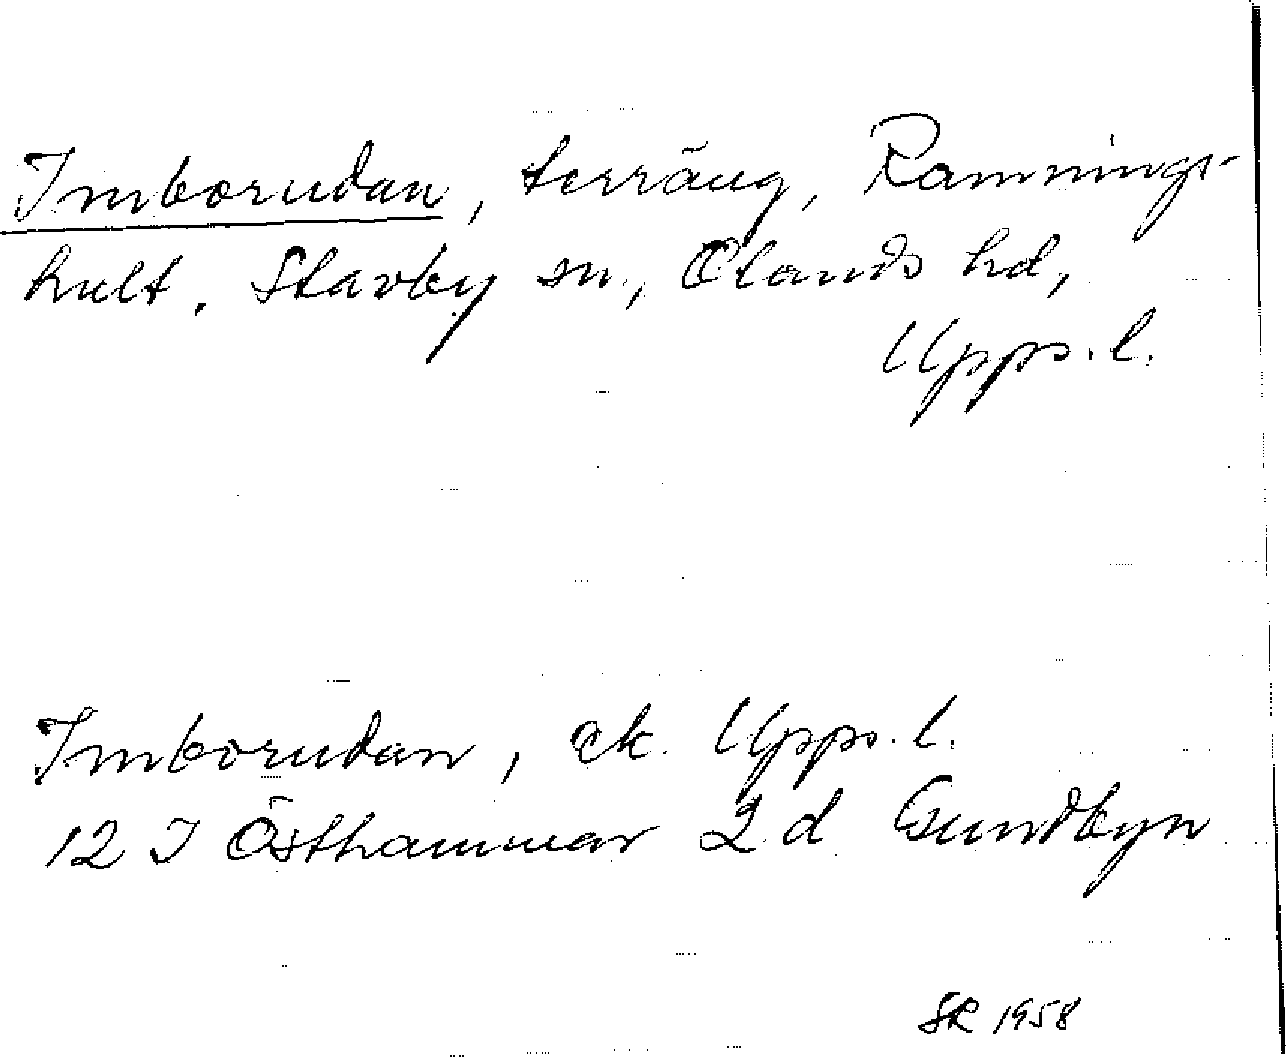 Imborudan, terräng, Rannings-
hult, Stavby sn, Olands hd,
Upps. l.
Imborudan, ek. Upps. l.
12 I Östhammar 2 d Gundbyn
SR 1958